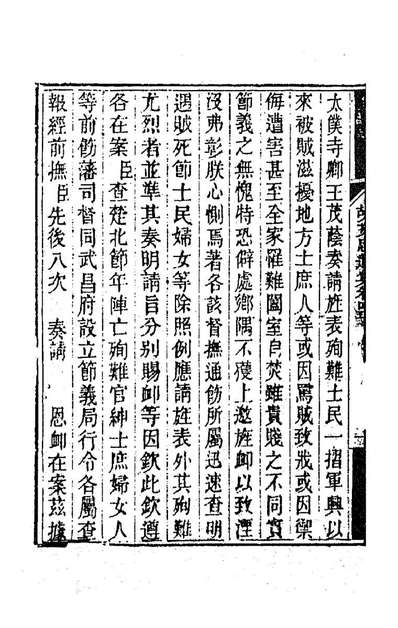 太僕寺卿王茂蔭奏請旌表殉難士民一摺軍興以
來被賊滋擾地方士庶人等或因罵賊致戕或因禦
侮遭害甚至全家罹難闔室自焚雖貴賤之不同實
節義之無愧特恐僻處鄉隅不獲上邀旌卹以致湮
沒弗彰朕心惻焉著各該督撫通飭所屬迅速查明
遇賊死節士民婦女等除照例應請旌表外其殉難
尤烈者並準其奏明請旨分別賜卹等因欽此欽遵
各在案臣查楚北節年陣亡殉難官紳士庶婦女人
等前飭藩司督同武昌府設立節義局行令各屬查
報經前撫臣先後八次奏請恩卹在案茲據